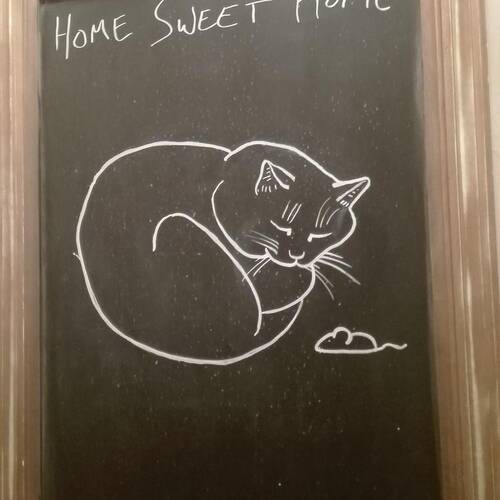 HOME SWEET HOME